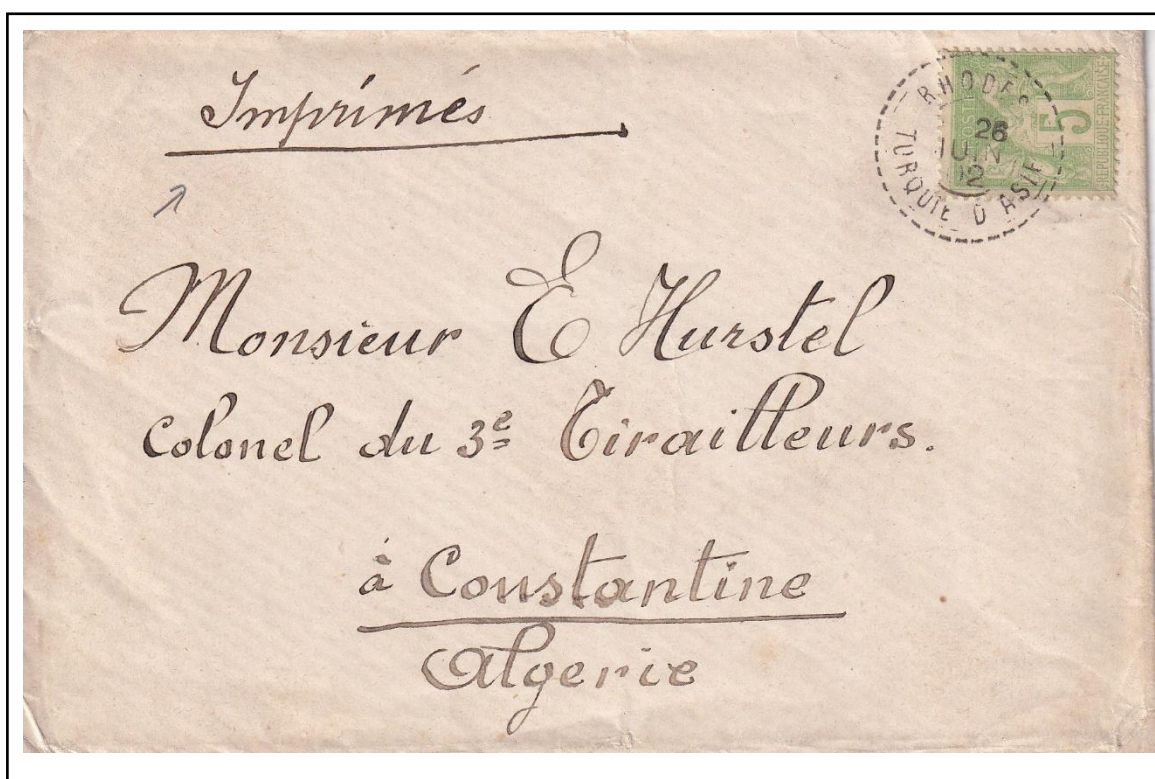 Imprimés
RHODES
26
JUIN
12
TURQUIE D ASIE
5
REPUBLIQUE FRANÇAISE
Monsieur E Hurstel
Colonel du 3e Tirailleurs.
à Constantine
Algerie